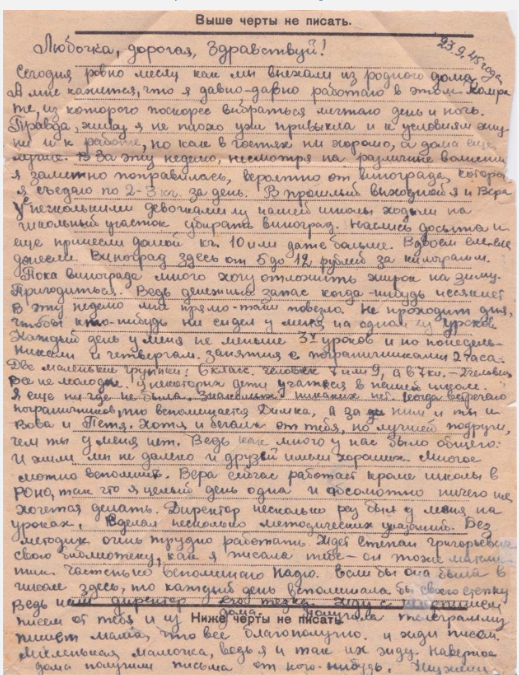 Выше черты не писать.
23.9.45 года
Любочка, дорогая, здравствуй!
Сегодня ровно месяц как мы выехали из родного дома.
А мне кажется, что я давно-давно работаю в этом
те, из которого поскорее выбраться мечтаю день и ночь.
Правда, живу я не плохо уже привыкла и к условиям жиз
ни и к работе, но как в гостях ни хорошо, а дома еще
лучше. За эту неделю, несмотря на различные волнения
я заметно поправилась, вероятно от винограда, которого
я съедаю по 2-3 кг. за день. В прошлый выходной я и Вера
с несколькими девочками из нашей школы ходили на
школьный участок убирать виноград. Наелись досыта и
еще принесли домой кг. 10 или даже больше. Вдвоем еле-еле
донесли. Виноград здесь от 5 до 12 рублей за килограмм.
Пока винограда много хочу отложить жирок на зиму.
Пригодиться. Ведь денежный запас когда-нибудь иссякнет
В эту неделю мне прямо-таки повезло. Не проходит дня,
чтобы кто-нибудь ни сидел у меня на одном из уроков
Каждый день у меня не меньше 3х уроков и по понедель-
никам и четвергам занятия с пограничниками 2 часа.
Две маленькие группы: 6 класс, человек 7 или 9, а в 7 кл. -
Все не молодые. У некоторых дети учатся в нашей школе.
Я еще ни где не была. Знакомых никаких нет. Когда встречаю
пограничников, то вспоминается Димка, а за ним и ты и
Вова и Петя. Хотя и бегали от тебя, но лучшей подруги,
чем ты у меня нет. Ведь как много у нас было общего.
И жили мы не далеко и друзей имели хороших. Многое
можно вспомнить. Вера сейчас работает кроме школы в
РОНО, так что я целый день одна и абсолютно ничего не
хочется делать. Директор несколько раз был у меня на
уроках, сделал несколько методических указаний. Без
методик очень трудно работать. Ждет Степан Григорьевич
свою библиотеку, как я писала тебе - он тоже матема
тик. Частенько вспоминаю Надю. Если бы она была в
школе здесь, то каждый день вспоминала бы своего Степку
Ведь наш директор его тезка. Жду с нетерпением
писем от тебя и из дома. Получила телеграмму
Ниже черты не писать
пишет мама, что все благополучно, и жди писем.
Миленькая мамочка, ведь я и так их жду. Наверное
дома получили письма от кого-нибудь.